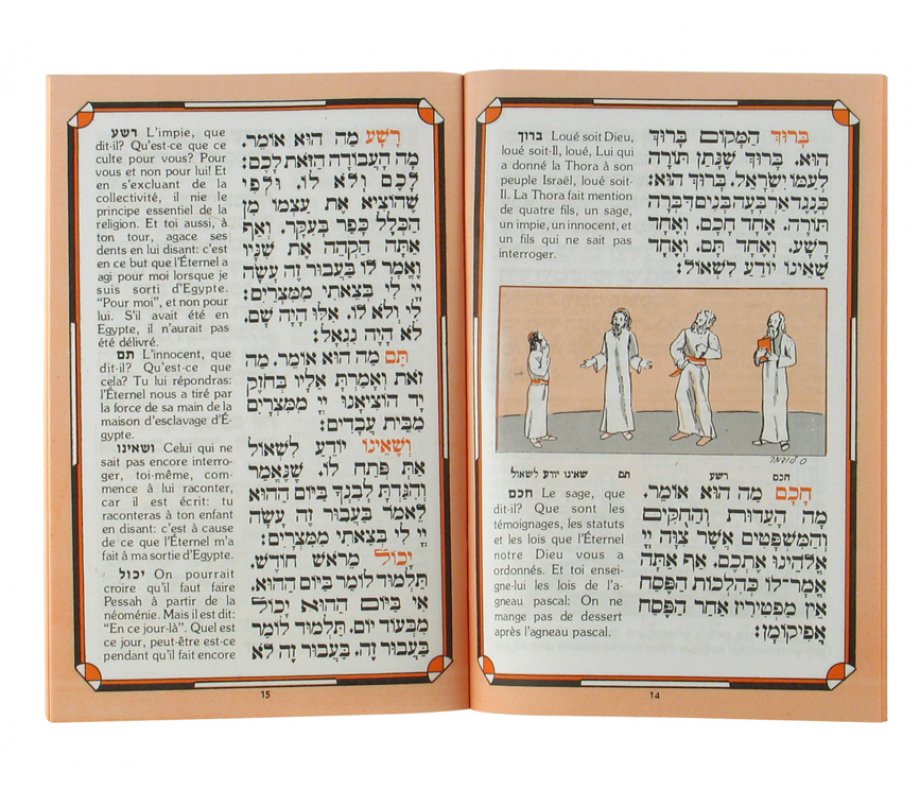 בָּרוּךְ הַמָּקוֹם בָּרוּךְ
הוּא. בָּרוּךְ שֶׁנָּתַן תּוֹרָה
לְעַמּוֹ יִשְׂרָאֵל. בָּרוּךְ הוּא:
כְּנֶגֶד אַרְבָּעָה בָנִים דִּבְּרָה
תוֹרָה. אֶחָד חָכָם. וְאֶחָד
רָשָׁע. וְאֶחָד תָּם. וְאֶחָד
שֶׁאֵינוֹ יוֹדֵעַ לִשְׁאוֹל:
ברוך Loué soit Dieu,
loué soit-Il, loué, Lui qui
a donné la Thora à son
peuple Israël, loué soit-
Il. La Thora fait mention
de quatre fils, un sage,
un impie, un innocent, et
un fils qui ne sait pas
interroger.
חכם רשע תם שאינו יודע לשאול
חָכָם מַה הוּא אוֹמֵר.
מָה הָעֵדוּת וְהַחֻקִּים
וְהַמִּשְׁפָּטִים אֲשֶׁר צִוָּה יְיָ
אֱלֹהֵינוּ אֶתְכֶם. אַף אַתָּה
אֱמָר־לוֹ כְּהִלְכוֹת הַפֶּסַח
אֵין מַפְטִירִין אַחַר הַפֶּסַח
אֲפִיקוֹמָן:
חכם Le sage, que
dit-il? Que sont les
témoignages, les statuts
et les lois que l'Éternel
notre Dieu vous a
ordonnés. Et toi ensei-
gne-lui les lois de l'a-
gneau pascal: On ne
mange pas de dessert
après l'agneau pascal.
14
רָשָׁע מַה הוּא אוֹמֵר.
מָה הָעֲבוֹדָה הַזֹּאת לָכֶם:
לָכֶם וְלֹא לוֹ. וּלְפִי
שֶׁהוֹצִיא אֶת עַצְמוֹ מִן
הַכְּלָל כָּפַר בָּעִקָּר. וְאַף
אַתָּה הַקְהֵה אֶת שִׁנָּיו
וֶאֱמָר לוֹ בַּעֲבוּר זֶה עָשָׂה
יְיָ לִי בְּצֵאתִי מִמִּצְרָיִם:
לִי וְלֹא לוֹ. אִלּוּ הָיָה שָׁם.
לֹא הָיָה נִגְאָל:
תָּם מַה הוּא אוֹמֵר. מַה
זֹּאת וְאָמַרְתָּ אֵלָיו בְּחֹזֶק
יָד הוֹצִיאָנוּ יְיָ מִמִּצְרַיִם
מִבֵּית עֲבָדִים:
וְשֶׁאֵינוֹ יוֹדֵעַ לִשְׁאוֹל
אַתְּ פְּתַח לוֹ. שֶׁנֶּאֱמַר
וְהִגַּדְתָּ לְבִנְךָ בַּיּוֹם הַהוּא
לֵאמֹר בַּעֲבוּר זֶה עָשָׂה
יְיָ לִי בְּצֵאתִי מִמִּצְרָיִם:
יָכוֹל מֵרֹאשׁ חוֹדֶשׁ.
תַּלְמוּד לוֹמַר בַּיּוֹם הַהוּא.
אִי בַּיּוֹם הַהוּא יָכוֹל
מִבְּעוֹד יוֹם. תַּלְמוּד לוֹמַר
בַּעֲבוּר זֶה. בַּעֲבוּר זֶה לֹא
רשע L'impie, que
dit-il? Qu'est-ce que ce
culte pour vous? Pour
vous et non pour lui! Et
en s'excluant de la
collectivité, il nie le
principe essentiel de la
religion. Et toi aussi, à
ton tour, agace ses
dents en lui disant: c'est
en ce but que l'Éternel a
agi pour moi lorsque je
suis sorti d'Egypte.
"Pour moi", et non pour
lui. S'il avait été en
Egypte, il n'aurait pas
été délivré.
תם L'innocent, que
dit-il? Qu'est-ce que
cela? Tu lui répondras:
l'Éternel nous a tiré par
la force de sa main de la
maison d'esclavage d'É-
gypte.
ושאינו Celui qui ne
sait pas encore interro-
ger, toi-même, com-
mence à lui raconter,
car il est écrit: tu
raconteras à ton enfant
en disant: c'est à cause
de ce que l'Éternel m'a
fait à ma sortie d'Egypte.
יכול On pourrait
croire qu'il faut faire
Pessah à partir de la
néoménie. Mais il est dit:
"En ce jour-là". Quel est
ce jour, peut-être est-ce
pendant qu'il fait encore
15